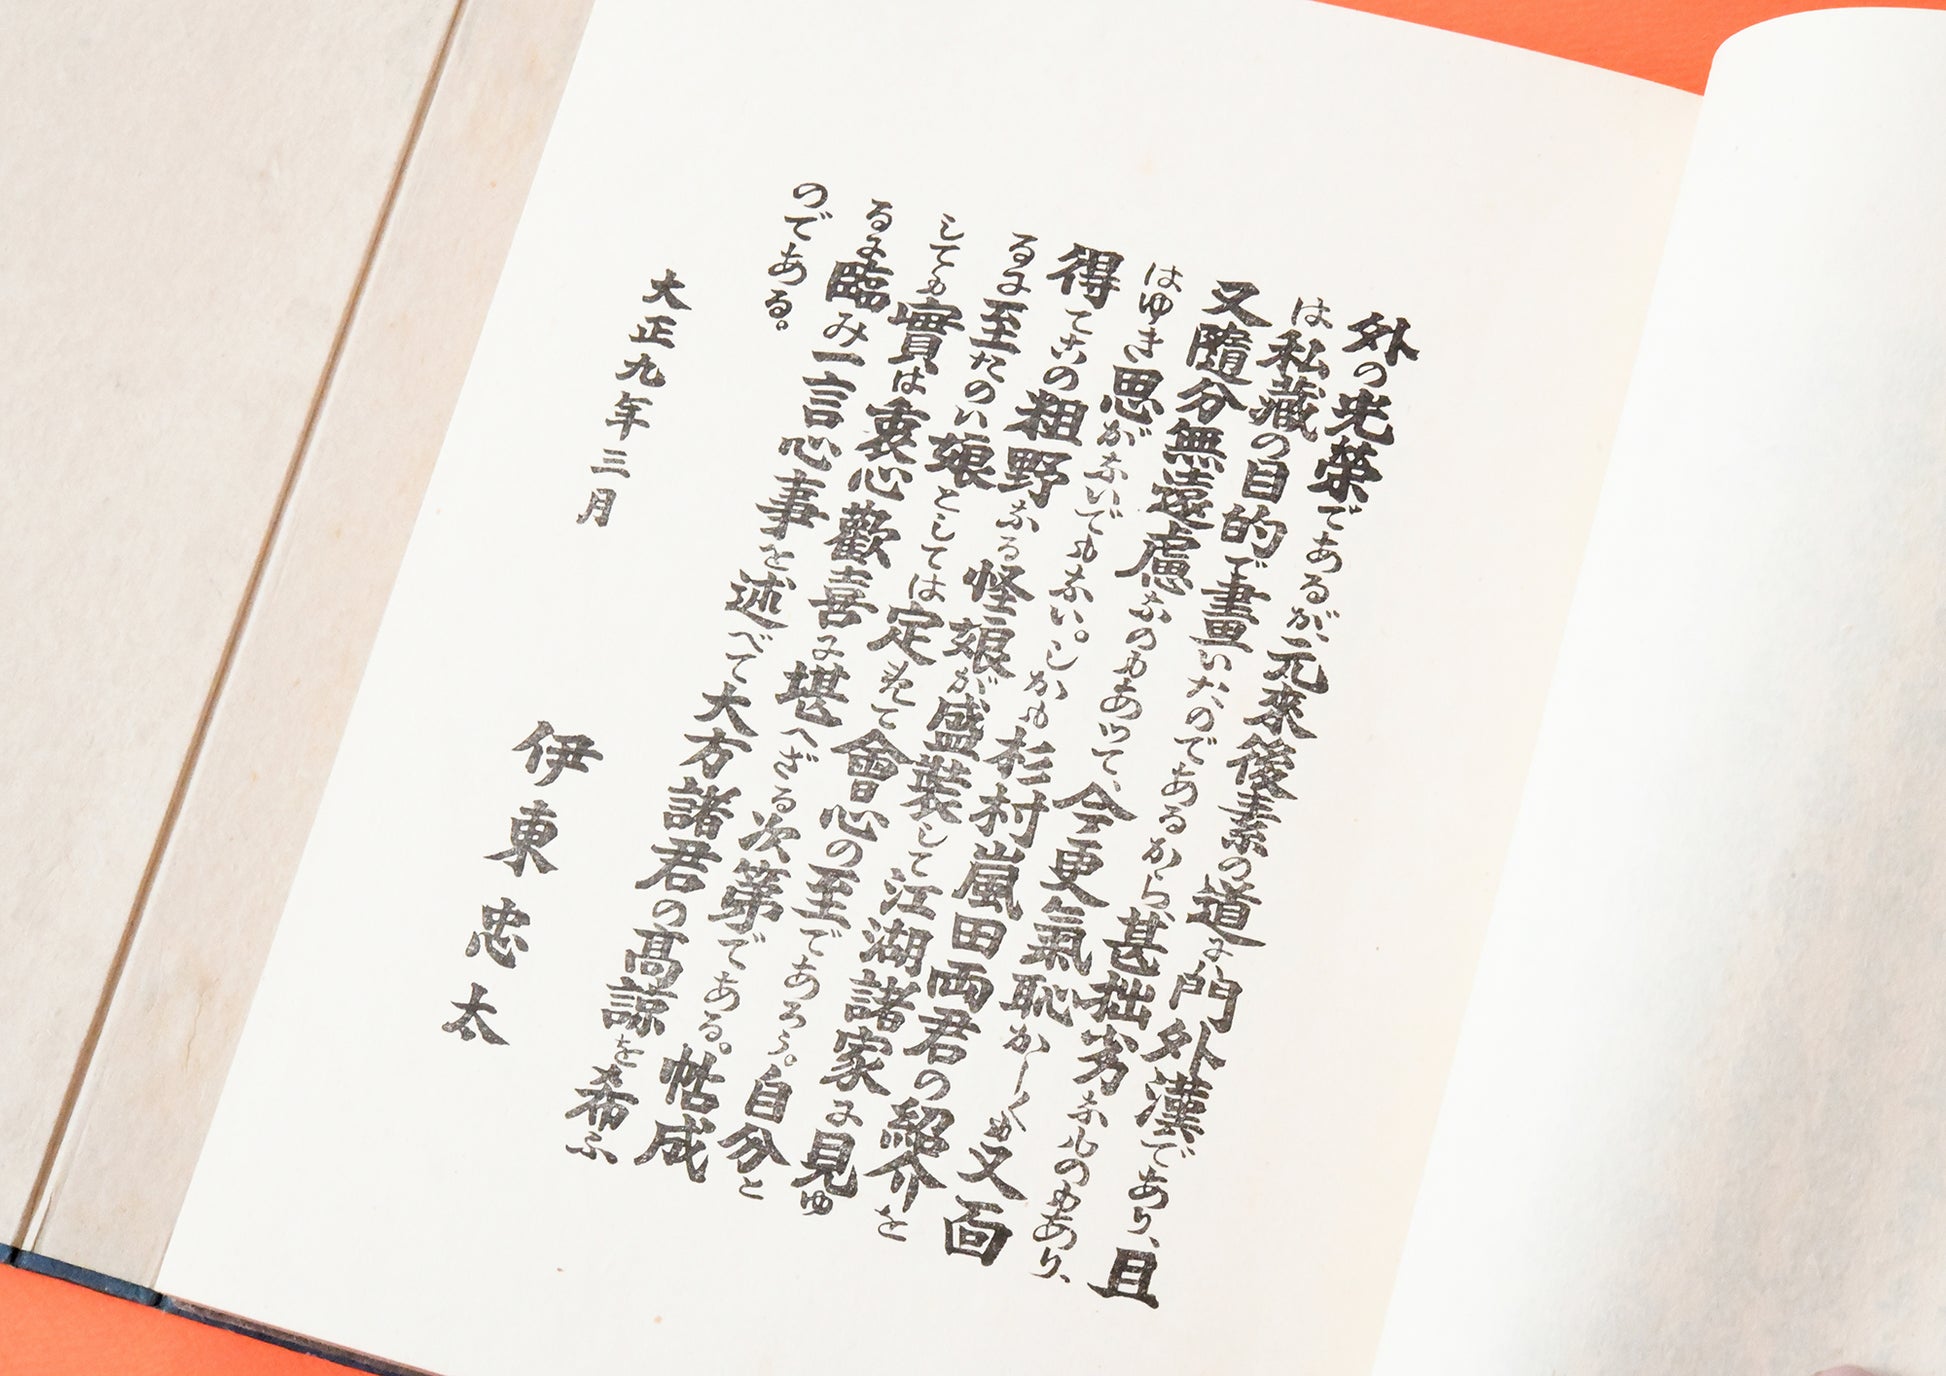 外の光榮であるが元來後素の道に門外漢であり、且
は私藏の目的で畫いたのであるから、甚拙劣なものもあり、
又隨分無遠慮なのもあつて、今更氣恥かしくも又面
はゆき思がないでもない。しかも杉村嵐田両君の紹介を
得てこの粗野なる怪娘が盛裝して江湖諸家に見ゆ
るに至たのハ娘としては定めて會心の至であろう。自分と
しても實は衷心歡喜に堪へざる次第である。帖成
るに臨み一言心事を述べて大方諸君の高諒を希ふ
のである。
大正九年三月
伊東忠太